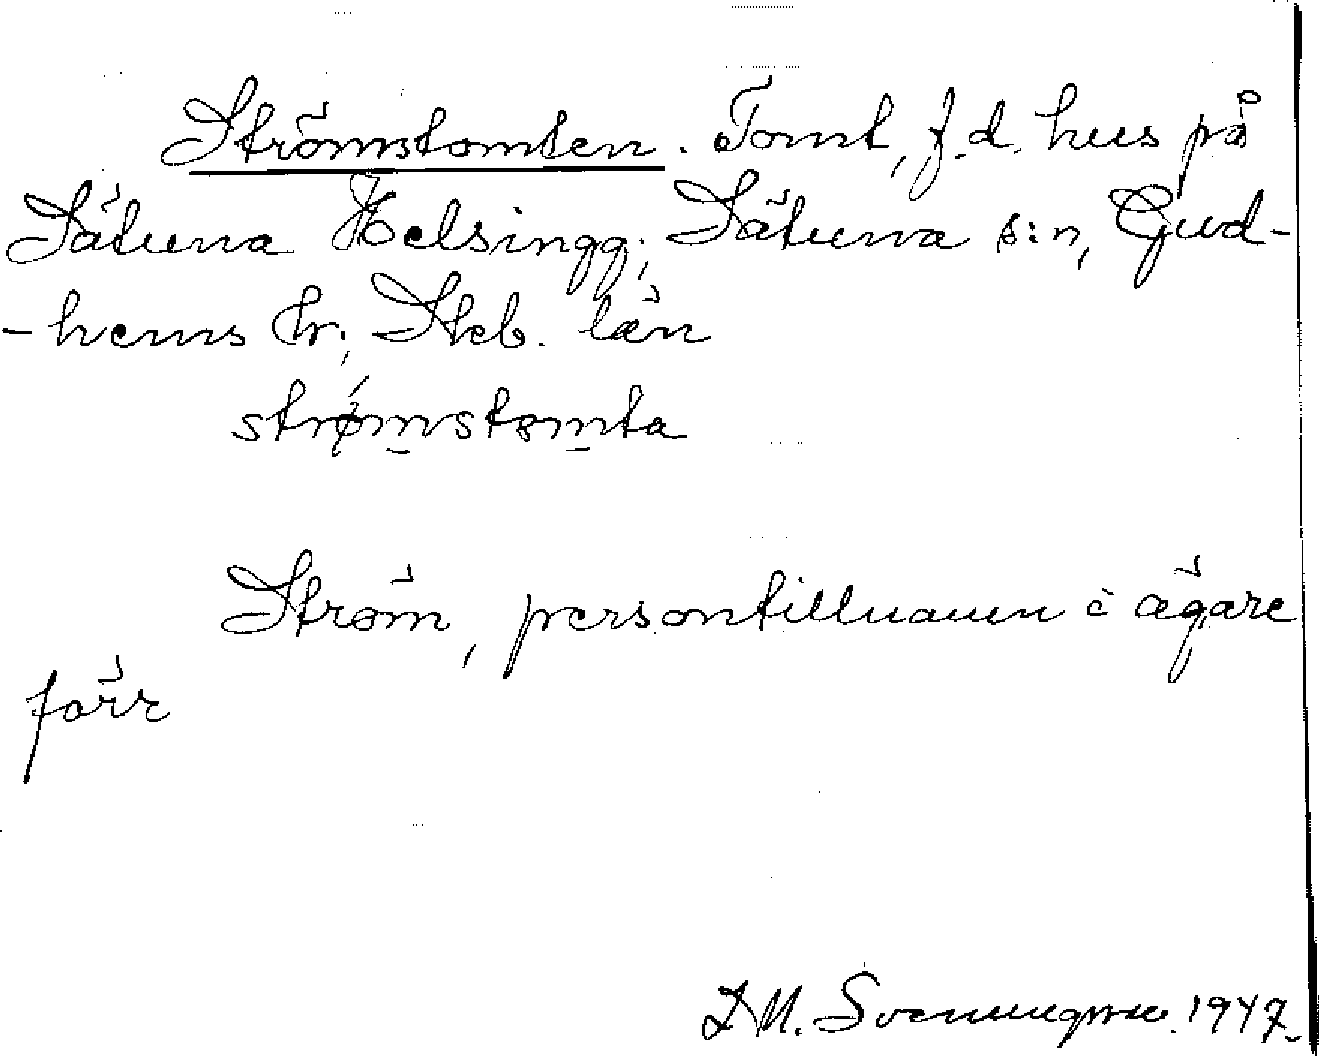 Strömstomten. Tomt, f.d. hus på
Sätuna Helsingg; Sätuna s:n, Gud-
-hems hr; Skb. län
strømstomta
Ström, persontillnamn å ägare
förr
D.M. 1947.